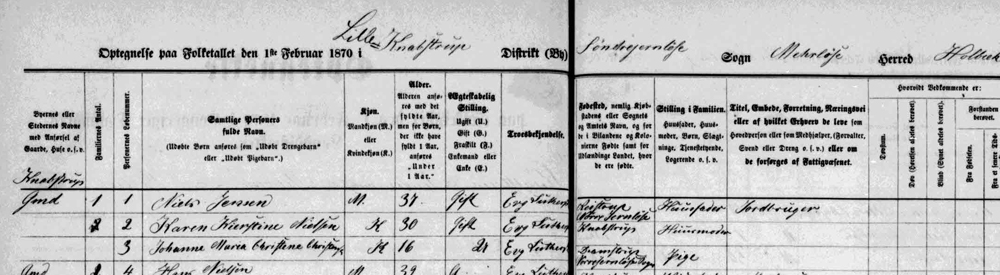 Optegnelse paa Folketallet den 1ste Februar 1870 i Lille Knabstrup Distrikt (By) Søndrejernløse Sogn Merløse Herred Holbæk
Byernes eller Stedernes Navne med Anførsel af Gaarde, Huse o. s. v.
Familiernes Antal.
Personernes Løbenummer.
Samtlige Personers fulde Navn.
(Udøbte Børn anføres som "Udøbt Drengebarn" eller "Udøbt Pigebarn").
Kjøn.
Mandkjøn (M.) eller Kvindekjøn (K.).
Alder.
Alderen anføres med det fyldte Aar, men for Børn, der ikke have fyldt 1 Aar, anføres "Under 1 Aar."
Ægteskabelig Stilling.
Ugift (U.) Gift (G.) Fraskilt (F.) Enkemand eller Enke (E.)
Troesbekjendelse.
Fødested, nemlig Kjøbstadens eller Sognets og Amtets Navn og for i Bilandene og Kolonierne Fødte samt for Udlændinge Landet, hvor de ere fødte.
Stilling i Familien.
Huusfader, Huusmoder, Børn, Slægtninge, Tjenestetyende, Logerende o. s. v.
Titel, Embede, Forretning, Næringsvei eller af hvilket Erhverv de leve som
Hovedperson eller som Medhjælper, (Forvalter, Svend eller Dreng o. s. v.) eller om de forsørges af Fattigvæsenet.
Hvorvidt Vedkommende er:
Døvstum.
Døv (Hørelsen aldeles berøvet).
Blind (Synet aldeles berøvet).
Forstanden berøvet.
Fra Fødselen.
Knabstrup
Gmd 1 1 Niels Jensen M. 37. Gift Evg Luthersk Nørre Jernløse Huusfader Jordbruger
2 2 Karen Kierstine Nielsen K 30 Gift Evg Luthersk Knabstrup Huusmoder
3 Johanne Maria Christine K 16 Evg Luthersk Pige
Gmd 4 Hans Nielsen M. 39